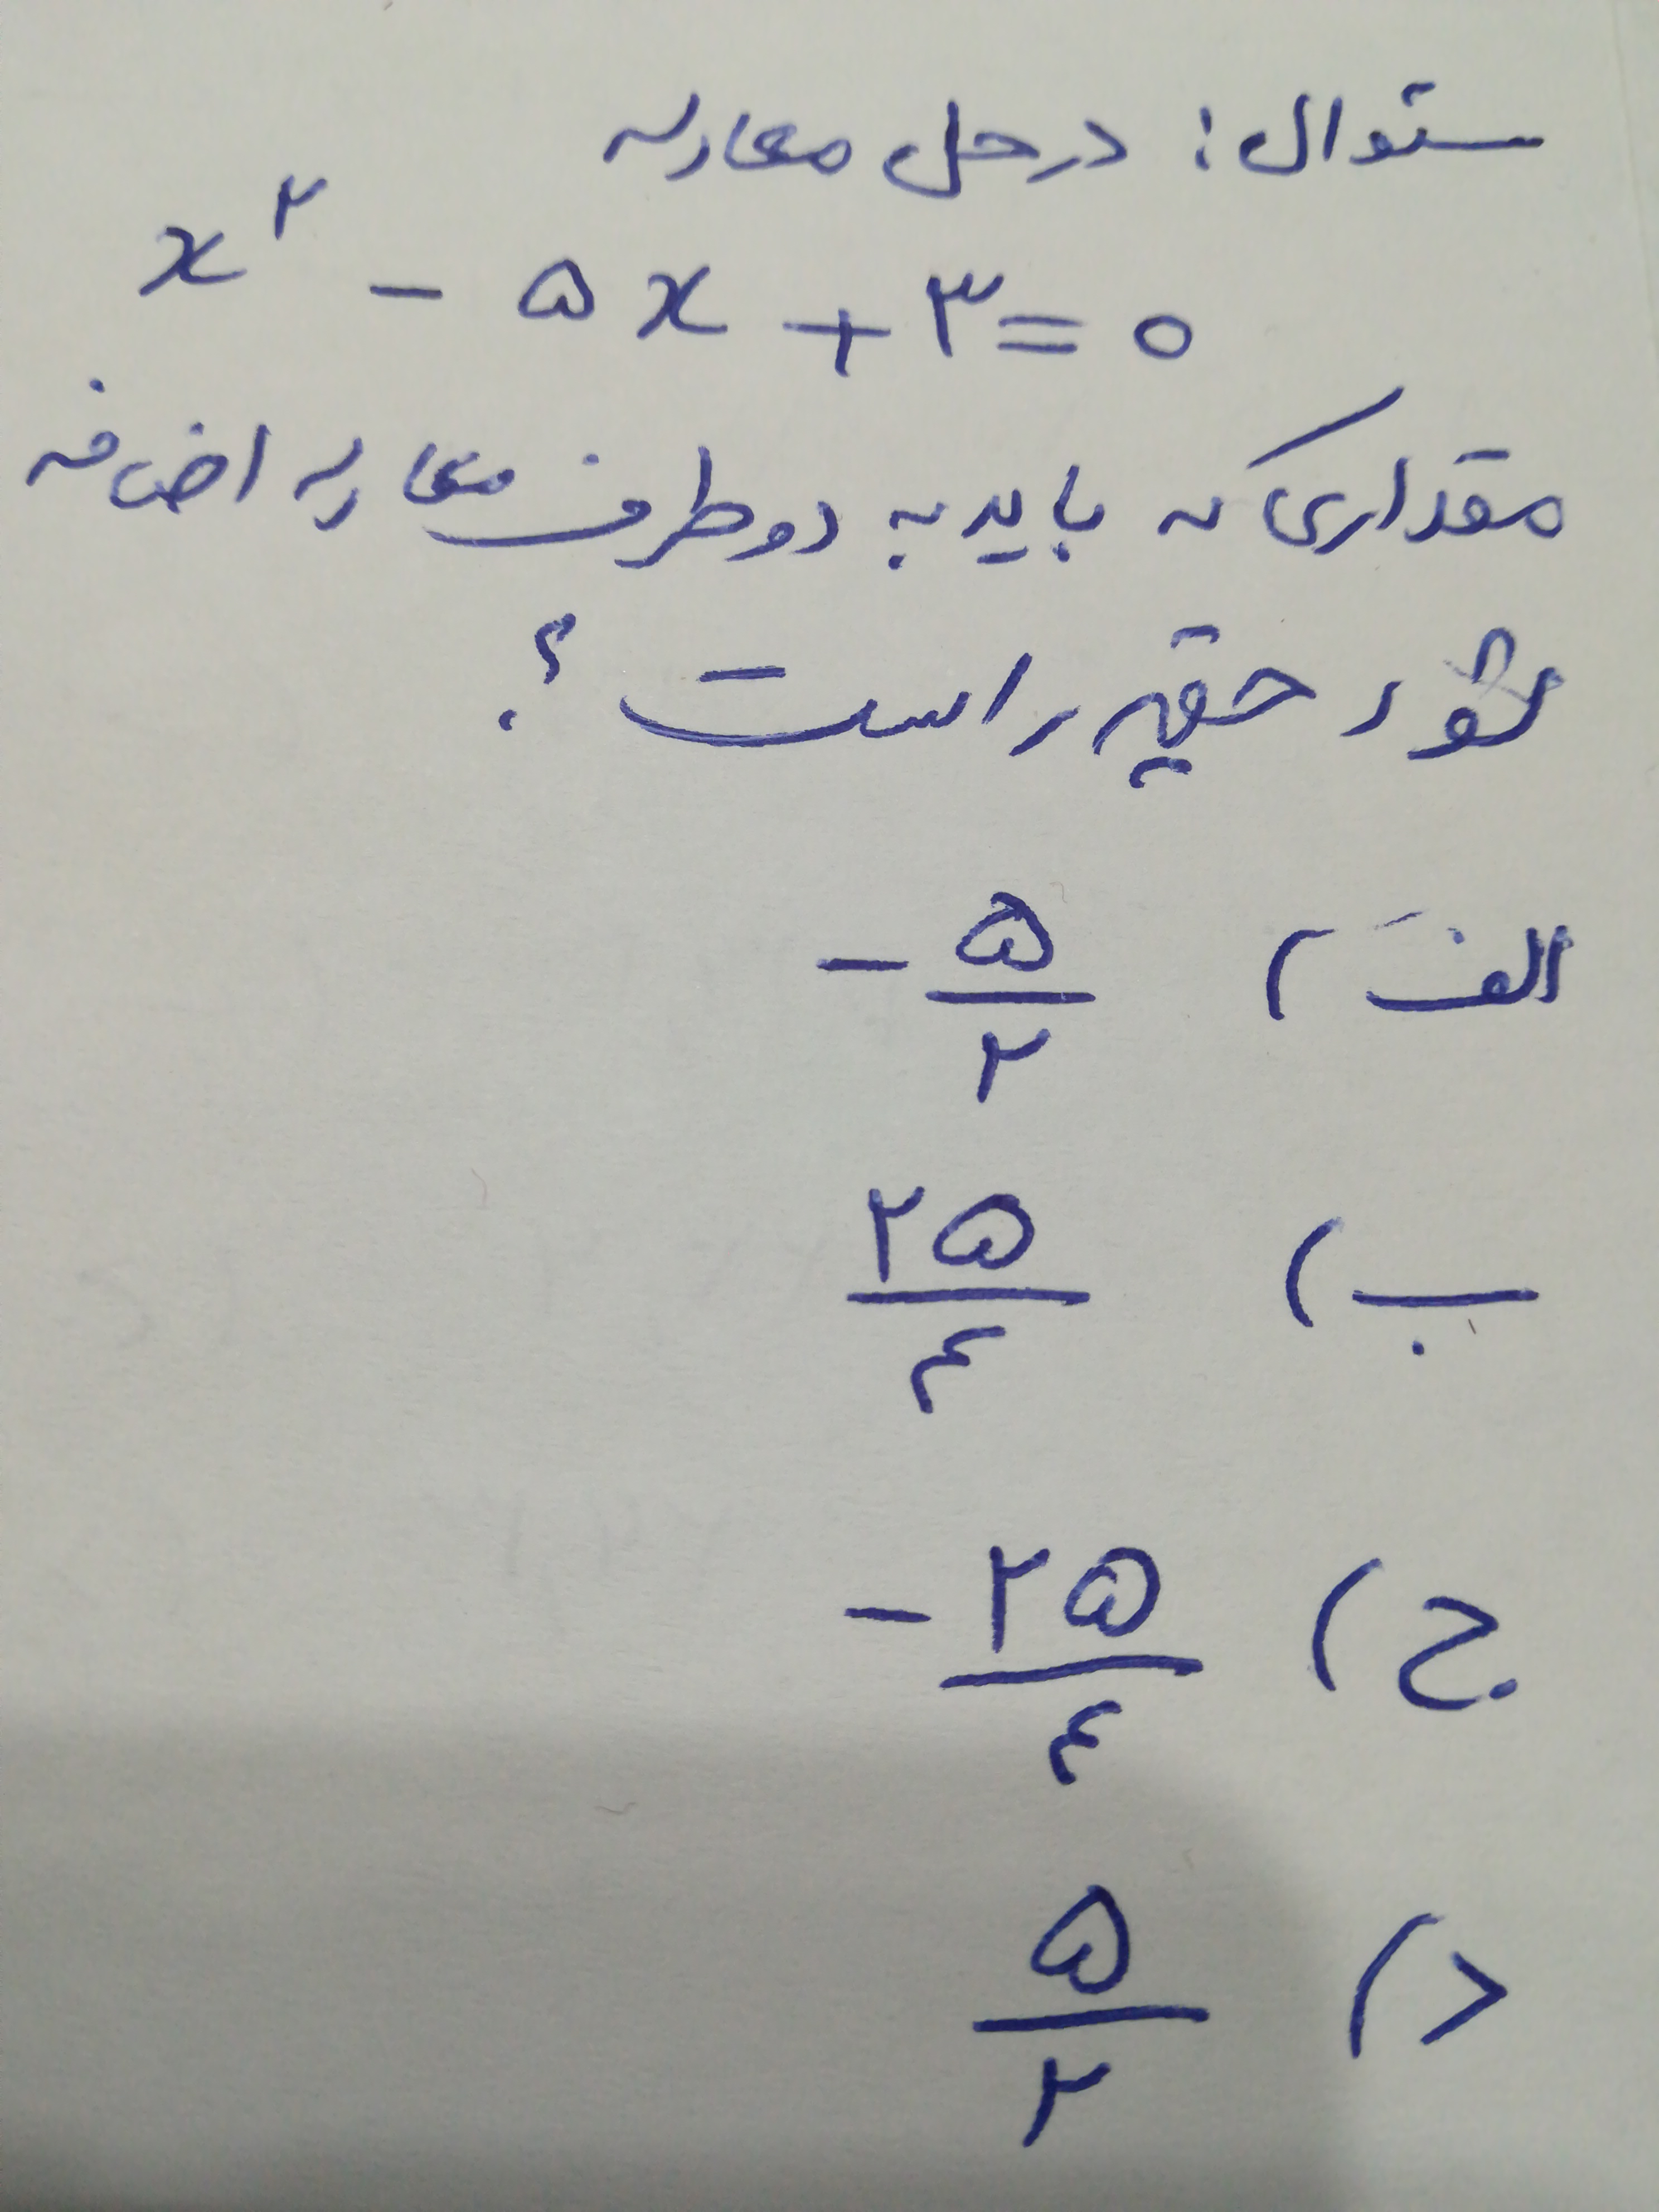 سئوال: در حل معادله
x² - ۵x + ۳ = ۰
مقداری که باید به دو طرف معادله اضافه
شود چقدر است؟
الف) -۵/۲
ب) ۲۵/۴
ج) -۲۵/۴
د) ۵/۲